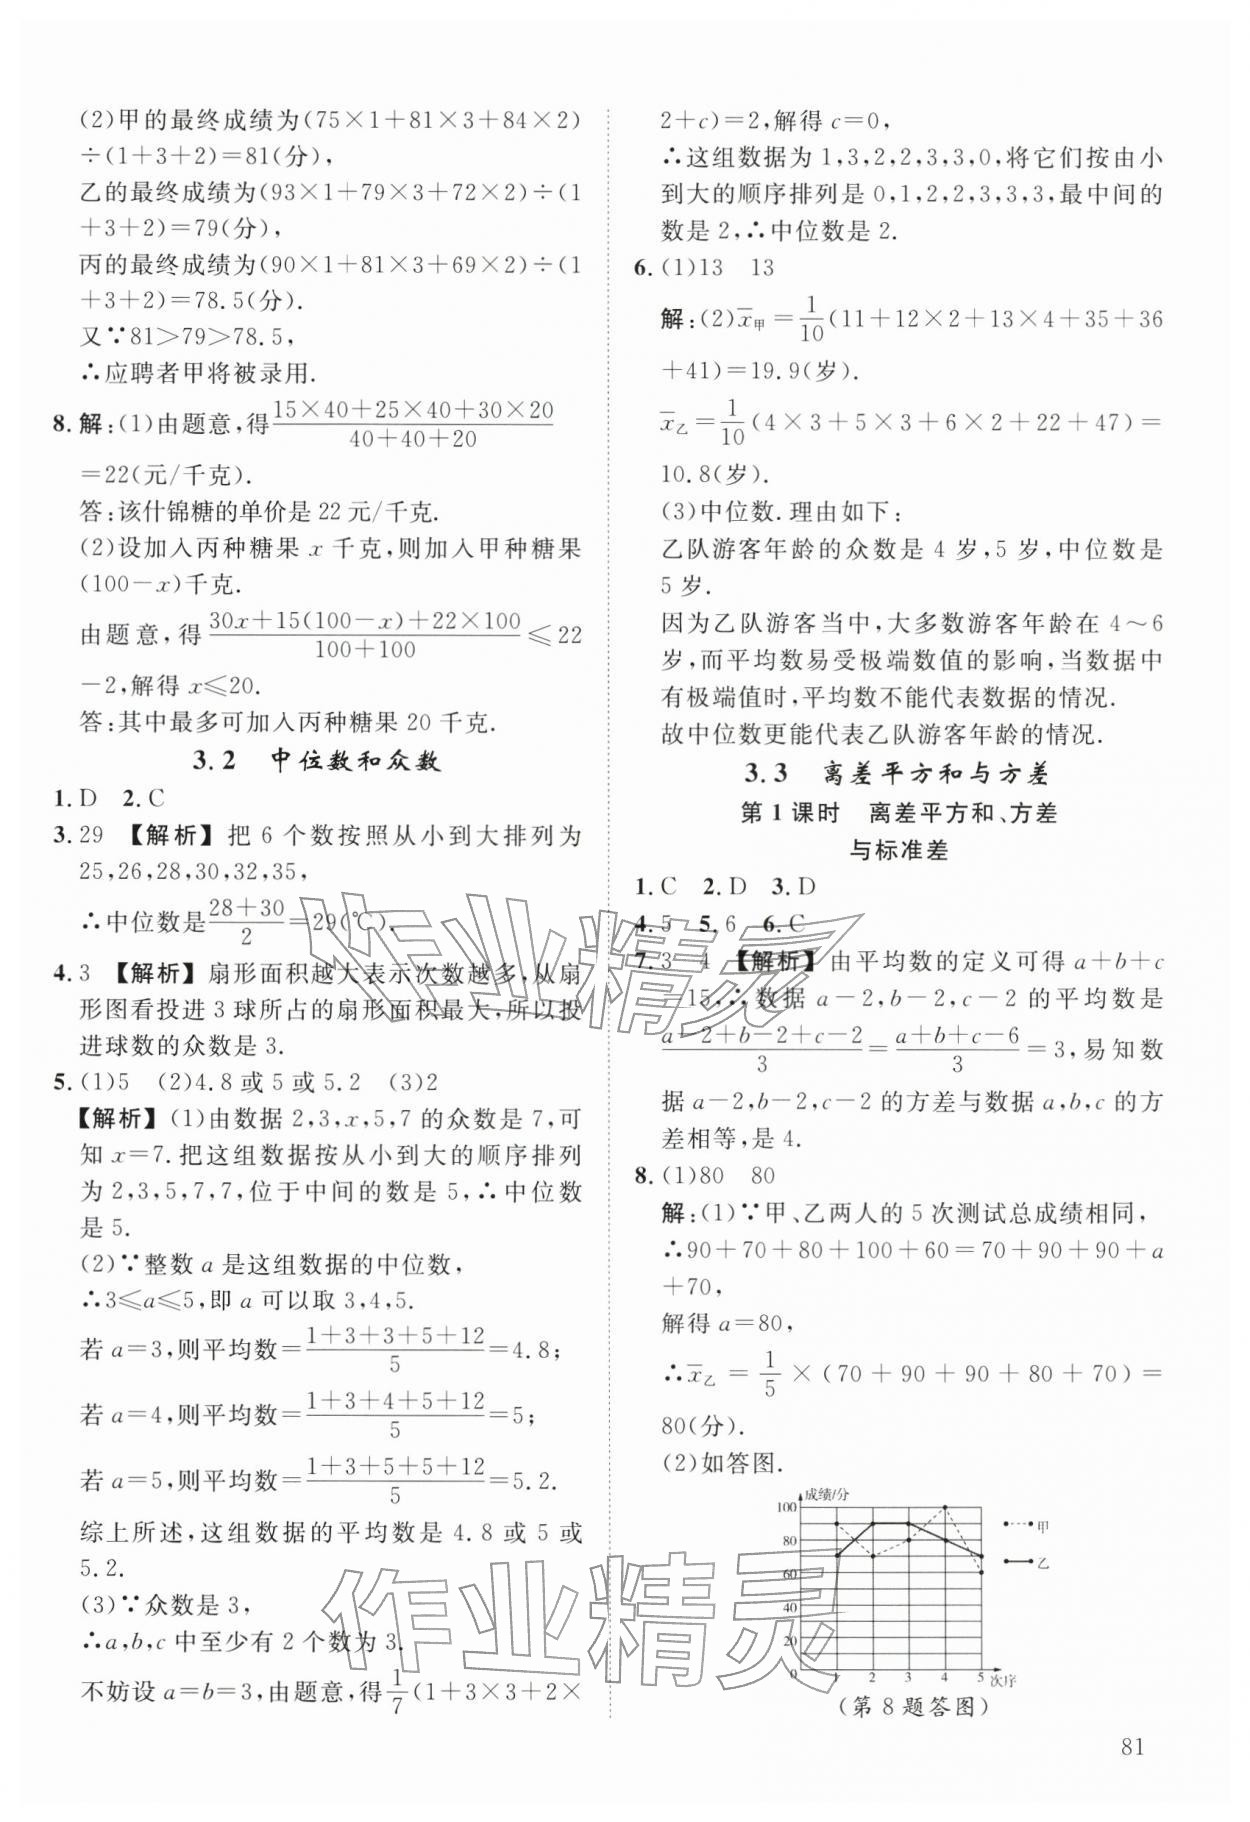 (2)甲的最终成绩为(75×1+81×3+84×2)
÷(1+3+2)=81(分),
乙的最终成绩为(93×1+79×3+72×2)÷(1
+3+2)=79(分),
丙的最终成绩为(90×1+81×3+69×2)÷(1
+3+2)=78.5(分).
又∵81>79>78.5,
∴应聘者甲将被录用.
8.解:(1)由题意,得(15×40+25×40+30×20)/(40+40+20)
=22(元/千克).
答:该什锦糖的单价是22元/千克.
(2)设加入丙种糖果x千克,则加入甲种糖果
(100-x)千克.
由题意,得(30x+15(100-x)+22×100)/(100+100)≤22
-2,解得x≤20.
答:其中最多可加入丙种糖果20千克.
3.2 中位数和众数
1.D 2.C
3.29 【解析】把6个数按照从小到大排列为
25,26,28,30,32,35,
∴中位数是(28+30)/2=29(℃).
4.3 【解析】扇形面积越大表示次数越多,从扇
形图看投进3球所占的扇形面积最大,所以投
进球数的众数是3.
5.(1)5 (2)4.8或5或5.2 (3)2
【解析】(1)由数据2,3,x,5,7的众数是7,可
知x=7.把这组数据按从小到大的顺序排列
为2,3,5,7,7,位于中间的数是5,∴中位数
是5.
(2)∵整数a是这组数据的中位数,
∴3≤a≤5,即a可以取3,4,5.
若a=3,则平均数=(1+3+3+5+12)/5=4.8;
若a=4,则平均数=(1+3+4+5+12)/5=5;
若a=5,则平均数=(1+3+5+5+12)/5=5.2.
综上所述,这组数据的平均数是4.8或5或
5.2.
(3)∵众数是3,
∴a,b,c中至少有2个数为3.
不妨设a=b=3,由题意,得1/7(1+3×3+2×
2+c)=2,解得c=0,
∴这组数据为1,3,2,2,3,3,0,将它们按由小
到大的顺序排列是0,1,2,2,3,3,3,最中间的
数是2,∴中位数是2.
6.(1)13 13
解:(2)x̄甲=1/10(11+12×2+13×4+35+36
+41)=19.9(岁).
x̄乙=1/10(4×3+5×3+6×2+22+47)=
10.8(岁).
(3)中位数.理由如下:
乙队游客年龄的众数是4岁,5岁,中位数是
5岁.
因为乙队游客当中,大多数游客年龄在4~6
岁,而平均数易受极端数值的影响,当数据中
有极端值时,平均数不能代表数据的情况.
故中位数更能代表乙队游客年龄的情况.
3.3 离差平方和与方差
第1课时 离差平方和、方差
与标准差
1.C 2.D 3.D
4.5 5.6 6.C
7.3 4 【解析】由平均数的定义可得a+b+c
=15,∴数据a-2,b-2,c-2的平均数是
(a-2+b-2+c-2)/3=(a+b+c-6)/3=3,易知数
据a-2,b-2,c-2的方差与数据a,b,c的方
差相等,是4.
8.(1)80 80
解:(1)∵甲、乙两人的5次测试总成绩相同,
∴90+70+80+100+60=70+90+90+a
+70,
解得a=80,
∴x̄乙=1/5×(70+90+90+80+70)=
80(分).
(2)如答图.
成绩/分
100
80
60
40
20
0
1 2 3 4 5 次序
甲
乙
(第8题答图)
81
作业精灵
作业精灵